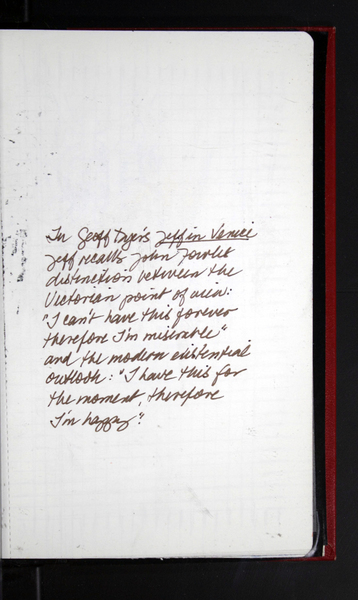 In Geoff Dyer's Jeff in Venice
Jeff recalls John Fowles
distinction between the
Victorian point of view:
"I can't have this forever
therefore I'm miserable"
and the modern existential
outlook: "I have this for
the moment, therefore
I'm happy."